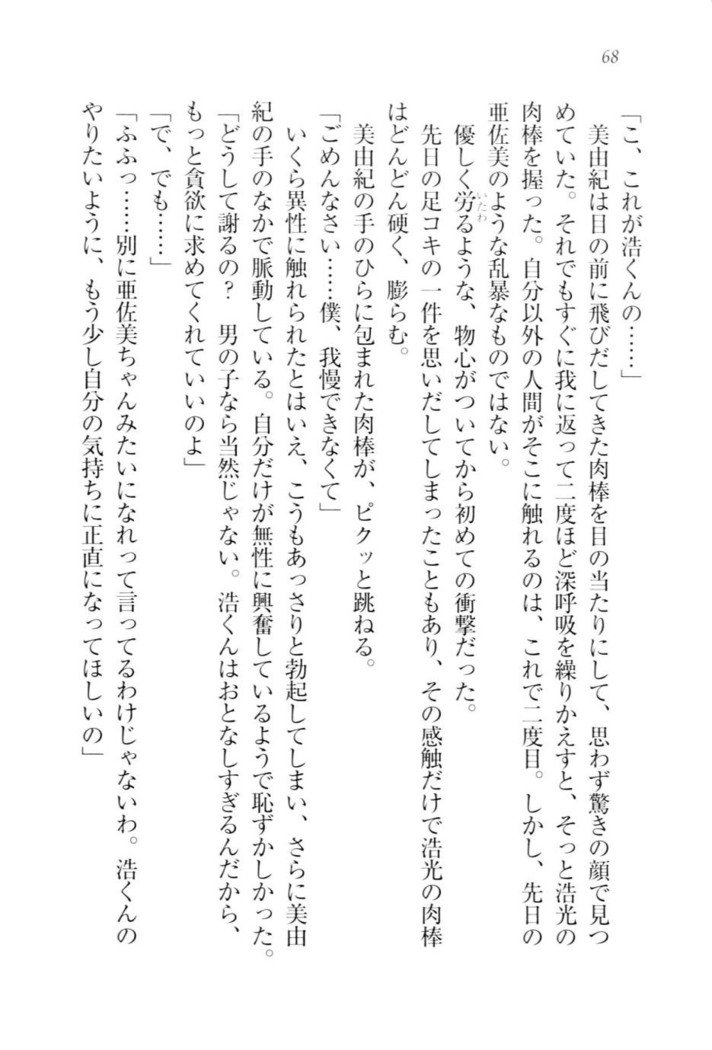 68
「こ、これが浩くんの……」
美由紀は目の前に飛びだしてきた肉棒を目の当たりにして、思わず驚きの顔で見つ
めていた。それでもすぐに我に返って二度ほど深呼吸を繰りかえすと、そっと浩光の
肉棒を握った。自分以外の人間がそこに触れるのは、これで二度目。しかし、先日の
亜佐美のような乱暴なものではない。
優しく労るような、物心がついてから初めての衝撃だった。
いたわ
先日の足コキの一件を思いだしてしまったこともあり、その感触だけで浩光の肉棒
はどんどん硬く、膨らむ。
美由紀の手のひらに包まれた肉棒が、ピクッと跳ねる。
「ごめんなさい……僕、我慢できなくて」
いくら異性に触れられたとはいえ、こうもあっさりと勃起してしまい、さらに美由
紀の手のなかで脈動している。自分だけが無性に興奮しているようで恥ずかしかった。
「どうして謝るの？　男の子なら当然じゃない。浩くんはおとなしすぎるんだから、
もっと貪欲に求めてくれていいのよ」
「で、でも……」
「ふふっ……別に亜佐美ちゃんみたいになれって言ってるわけじゃないわ。浩くんの
やりたいように、もう少し自分の気持ちに正直になってほしいの」